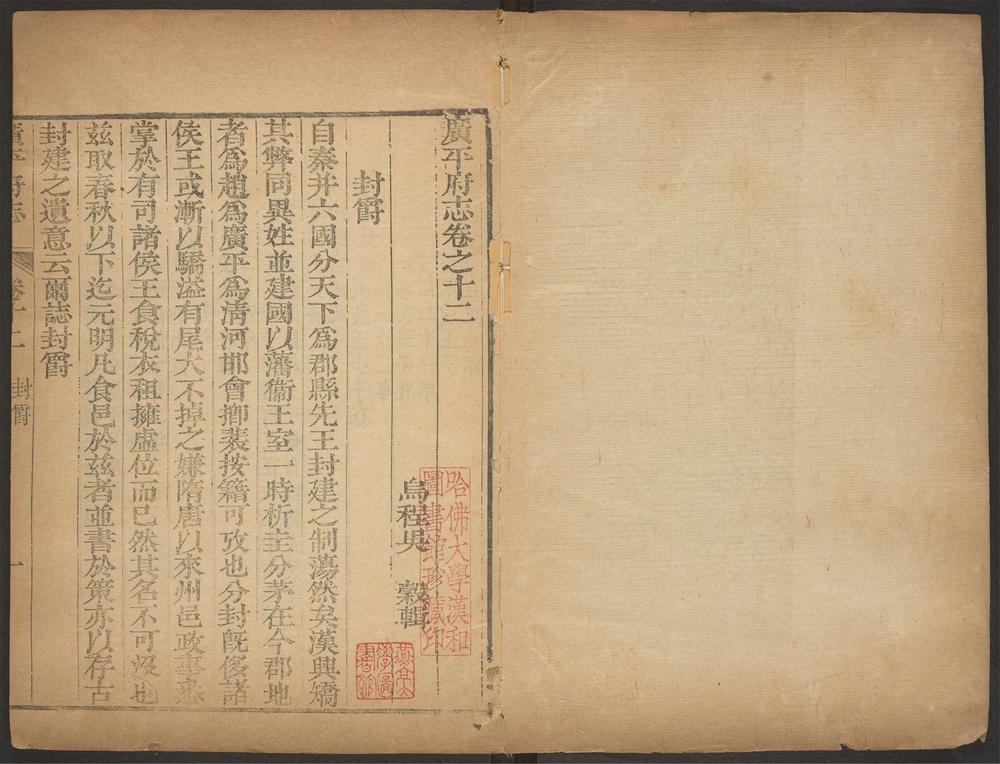 廣平府志卷之十二
烏程吳 穀輯
封爵
自秦并六國分天下爲郡縣先王封建之制蕩然矣漢興矯
其弊同異姓並建國以藩衞王室一時析圭分茅在今郡地
者爲趙爲廣平爲淸河邯會挪裴按籍可攷也分封旣侈諸
侯王或漸以驕溢有尾大不掉之嫌隋唐以來州邑政事悉
掌於有司諸侯王食稅衣租擁虛位而已然其名不可沒也
茲取春秋以下迄元明凡食邑於茲者並書於策亦以存古
封建之遺意云爾誌封爵
廣平府志 卷十二 封爵 一
哈佛大學漢和
圖書館珍藏印
燕京
學圖
書